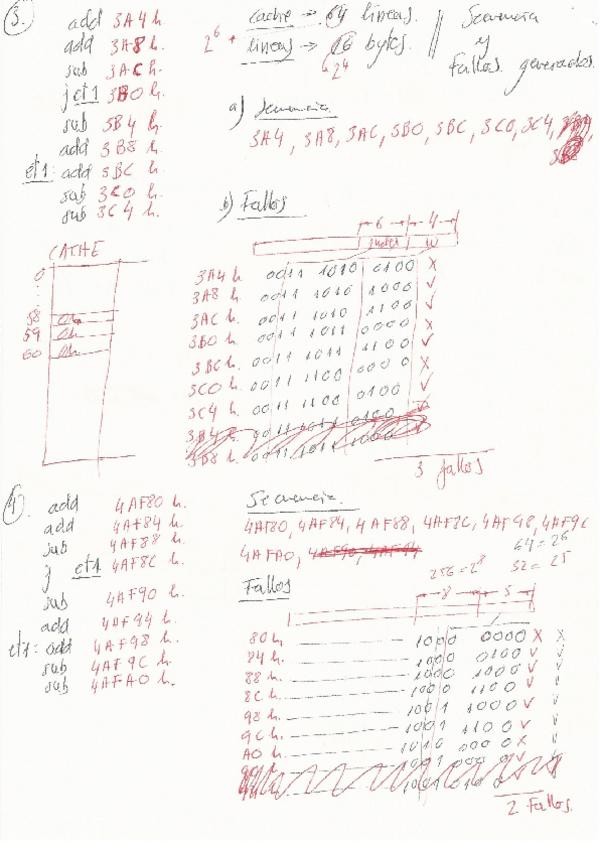 3.
add 3A4 h.
add 3A8 h.
sub 3AC h.
j et1 3B0 h.
sub 3B4 h.
add 3B8 h.
et1: add 3BC h.
sub 3C0 h.
sub 3C4 h.
cache → 64 lineas.
2^6 + lineas → 16 bytes.
2^4
Secuencia
y
fallos generados.
a) Secuencia
3A4, 3A8, 3AC, 3B0, 3BC, 3C0, 3C4,
b) Fallos
6 4
index w
CACHE
0
58
59
60
3A4 h. 0011 1010 0100 X
3A8 h. 0011 1010 1000 ✓
3AC h. 0011 1010 1100 ✓
3B0 h. 0011 1011 0000 X
3BC h. 0011 1011 1100 ✓
3C0 h. 0011 1100 0000 X
3C4 h. 0011 1100 0100 ✓
3B4 h. 0011 1011 0100
3B8 h. 0011 1011 1000
3 fallos
4.
add 4AF80 h.
add 4AF84 h.
sub 4AF88 h.
j et1 4AF8C h.
sub 4AF90 h.
add 4AF94 h.
et1: add 4AF98 h.
sub 4AF9C h.
sub 4AFA0 h.
Secuencia.
4AF80, 4AF84, 4AF88, 4AF8C, 4AF98, 4AF9C
4AFA0, 4AF90, 4AF94
64 = 2^6
256 = 2^8 32 = 2^5
Fallos
8 5
80 h. 1000 0000 X X
84 h. 1000 0100 ✓ ✓
88 h. 1000 1000 ✓ ✓
8C h. 1000 1100 ✓ ✓
98 h. 1001 1000 ✓ ✓
9C h. 1001 1100 ✓ ✓
A0 h. 1010 0000 X ✓
2 Fallos.